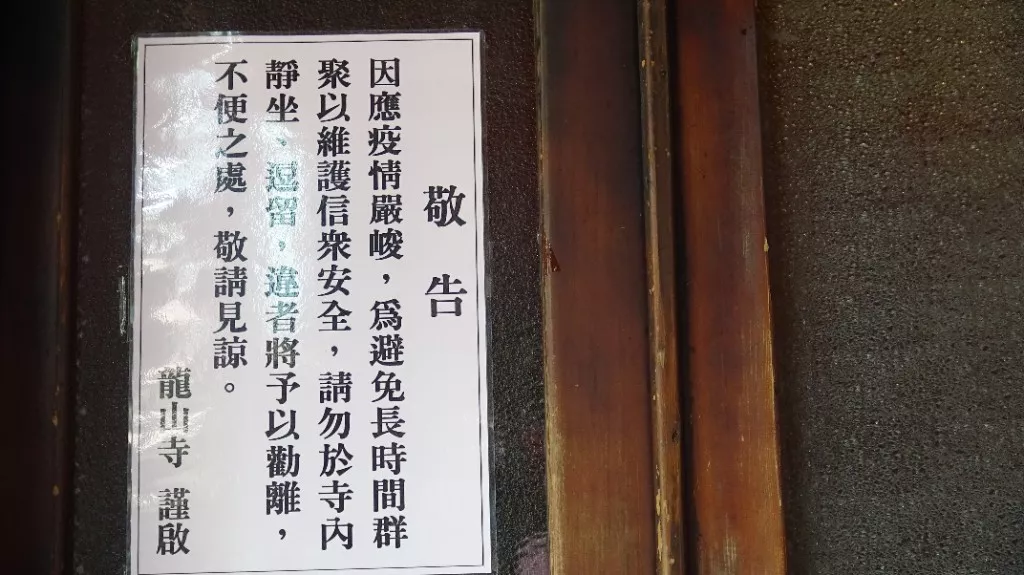 敬告
因應疫情嚴峻，為避免長時間群
聚以維護信眾安全，請勿於寺內
靜坐、逗留，違者將予以勸離，
不便之處，敬請見諒。
龍山寺 謹啟